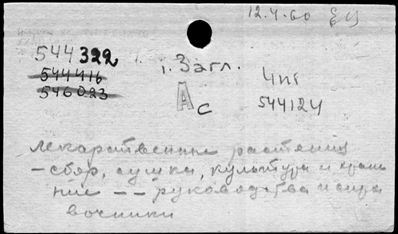 12.4.60
544322
1. Загл.
544416
546023
А с
544124
лекарственные растения
- сбор, сушка, культура и хране
ние -- руководства и спра
вочники